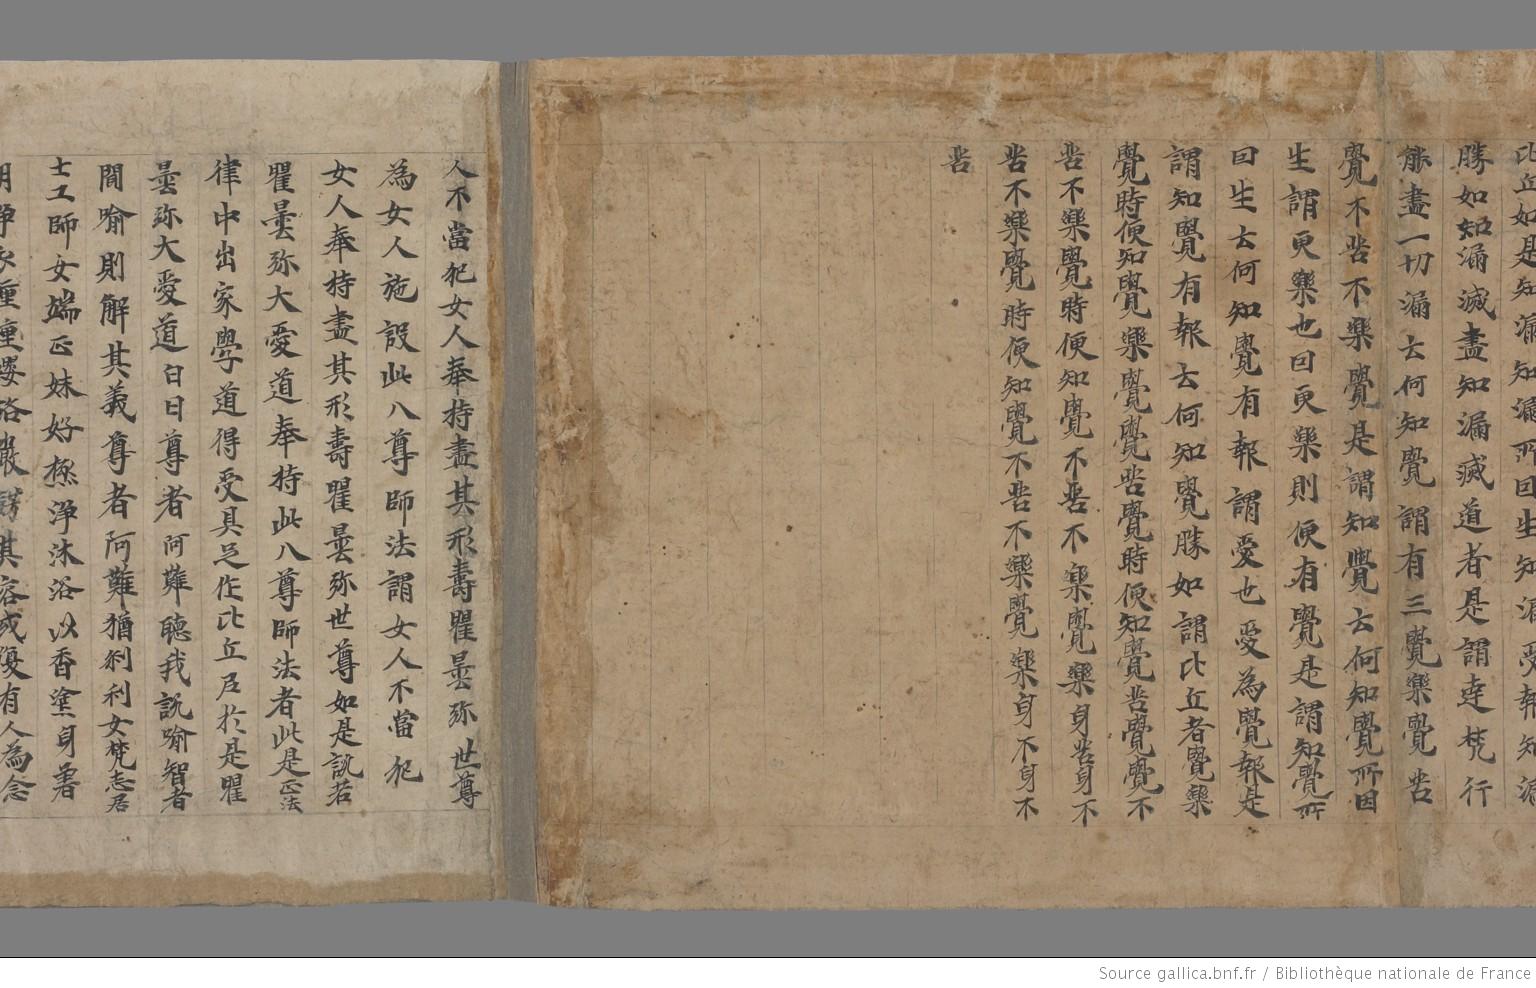 比丘如是知漏知漏所因生知漏受報知漏
勝如知漏滅盡知漏滅道者是謂達梵行
能盡一切漏云何知覺謂有三覺樂覺苦
覺不苦不樂覺是謂知覺云何知覺所因
生謂更樂也因更樂則便有覺是謂知覺所
因生云何知覺有報謂愛也愛為覺報是
謂知覺有報云何知覺勝如謂比丘者覺樂
覺時便知覺樂覺覺苦覺時便知覺苦覺覺不
苦不樂覺時便知覺不苦不樂覺樂身苦身不
苦不樂覺時便知覺不苦不樂覺樂身不身不
苦
人不當犯女人奉持盡其形壽瞿曇弥世尊
為女人施設此八尊師法謂女人不當犯
女人奉持盡其形壽瞿曇弥世尊如是説若
瞿曇弥大愛道奉持此八尊師法者此是正法
律中出家學道得受具足作比丘尼於是瞿
曇弥大愛道白曰尊者阿難聽我説喻智者
聞喻則解其義尊者阿難猶刹利女梵志居
士工師女端正姝好極淨沐浴以香塗身著
明淨衣種種瓔珞嚴
其容或復有人為念
Source gallica.bnf.fr / Bibliothèque nationale de France